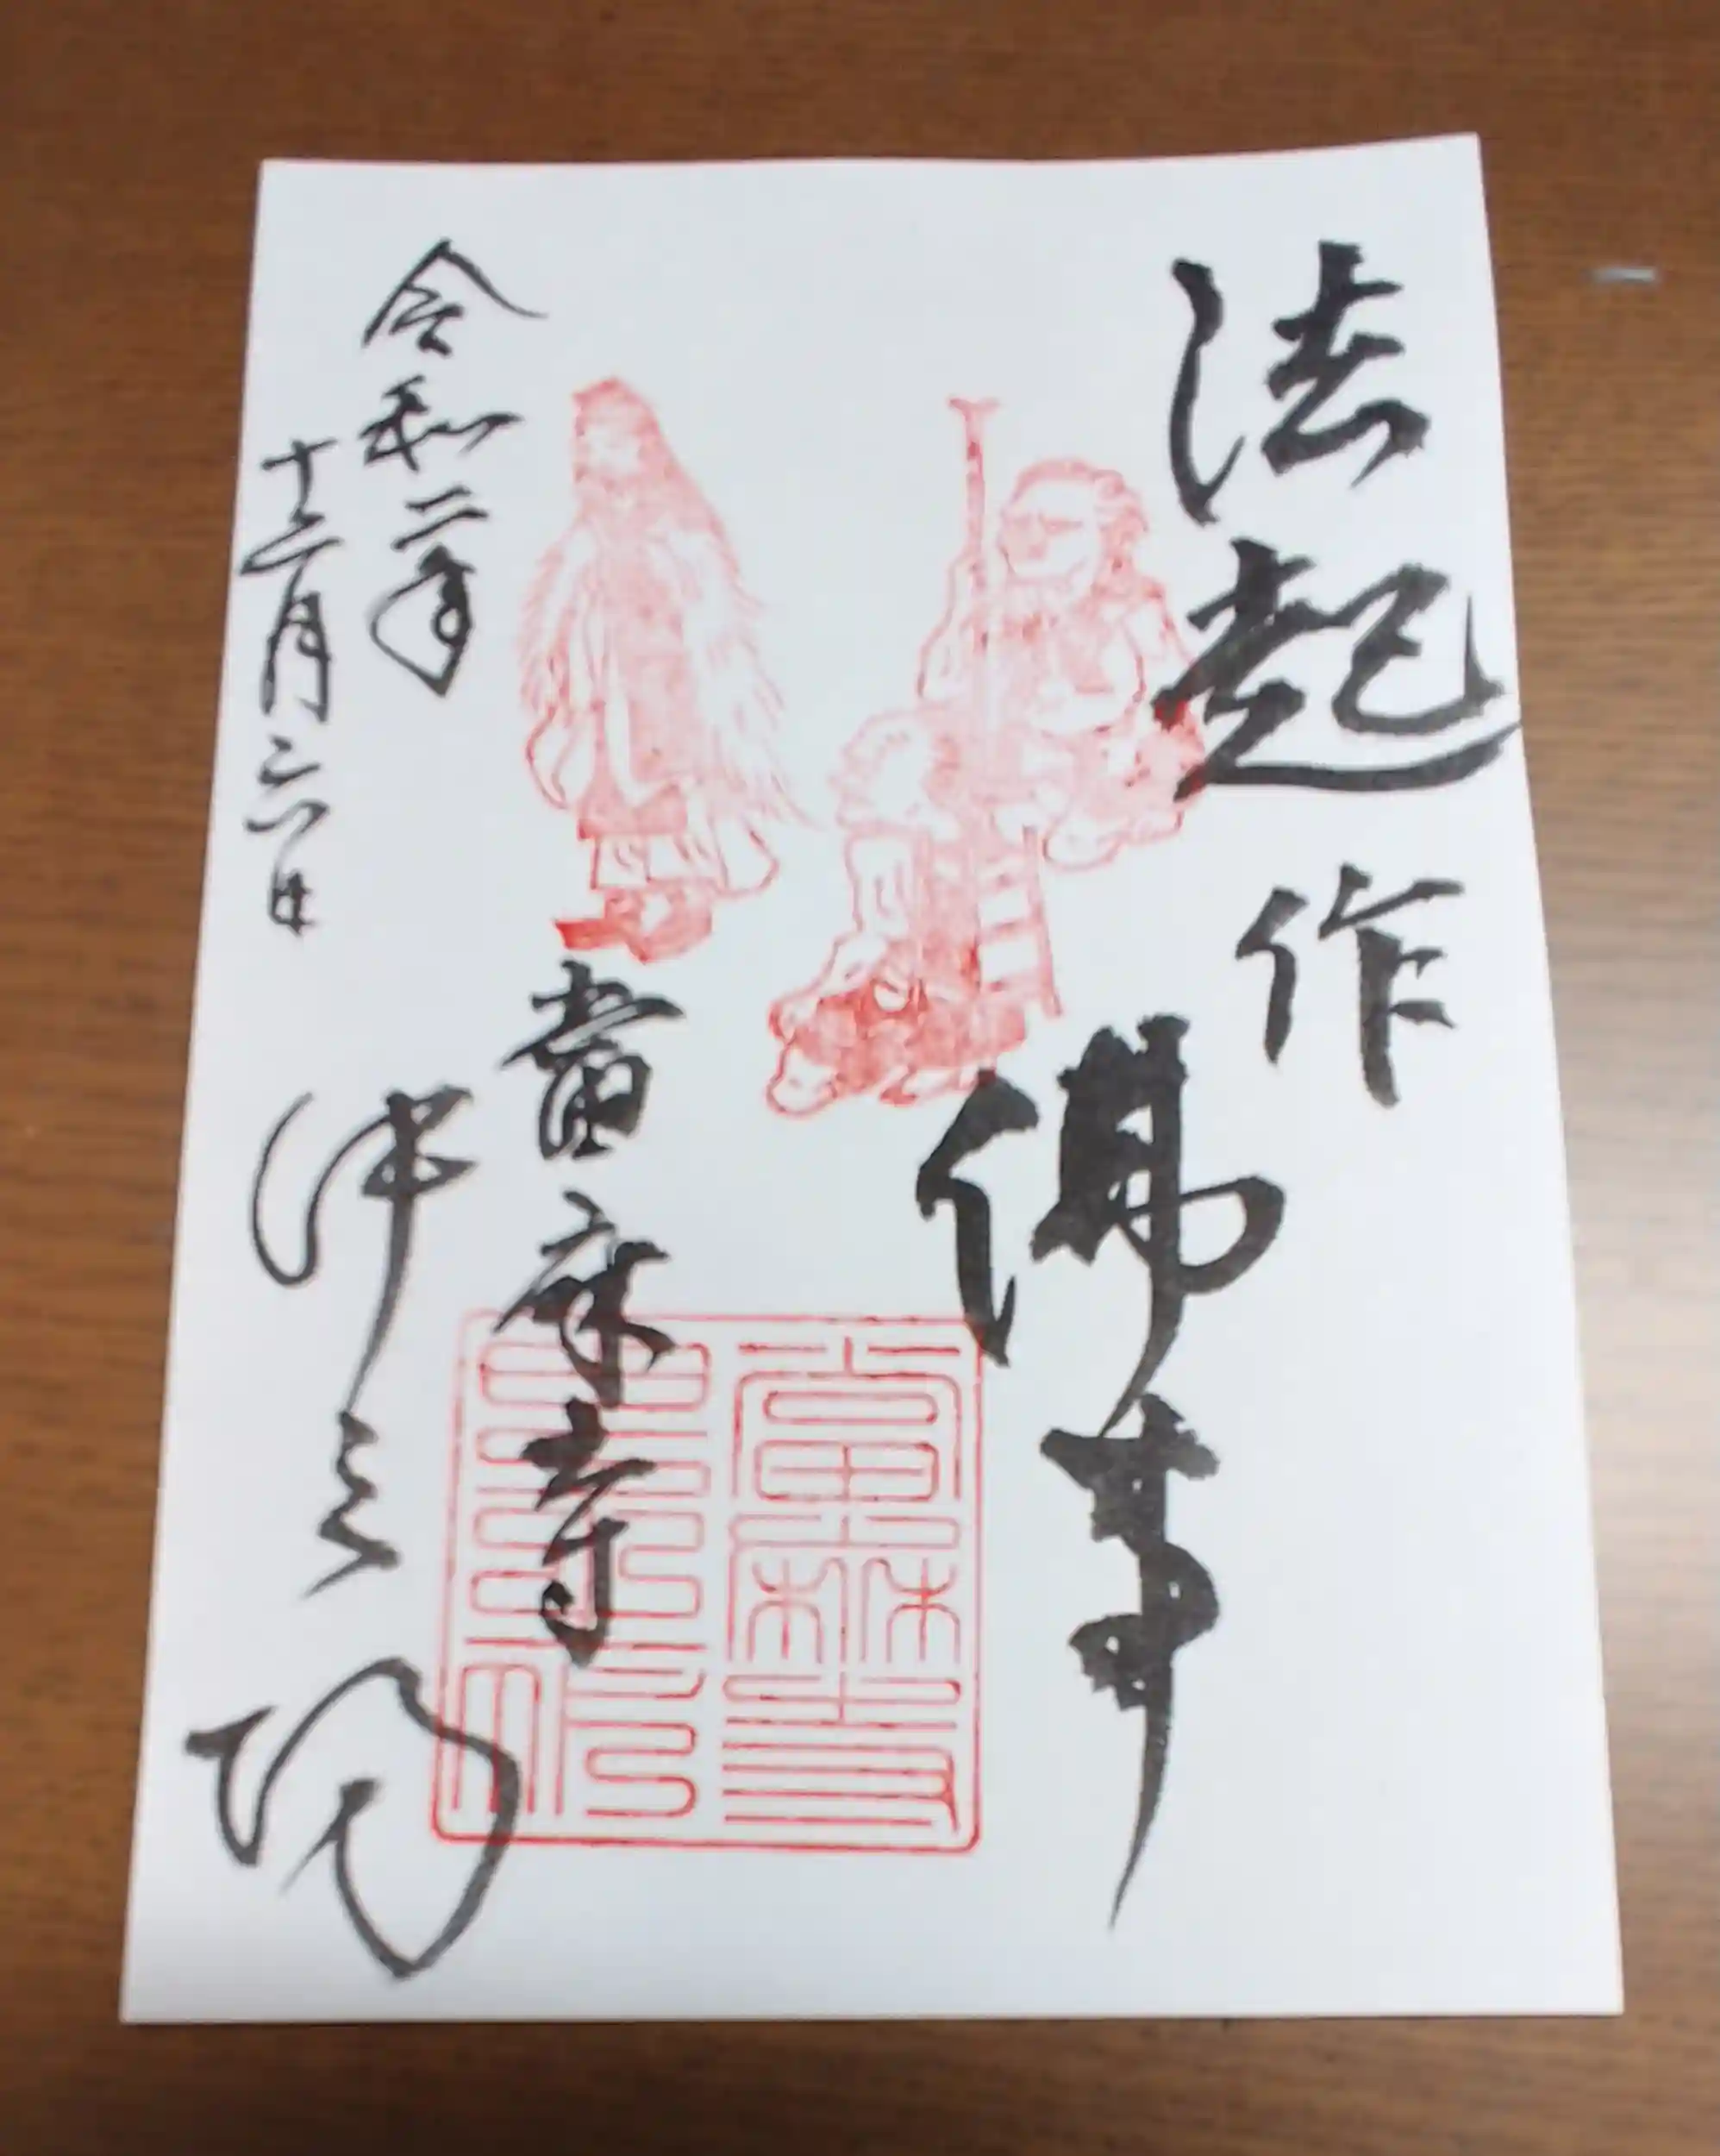 法起
作
佛事
令和二年
十二月六日
當麻寺
中之坊
當麻寺